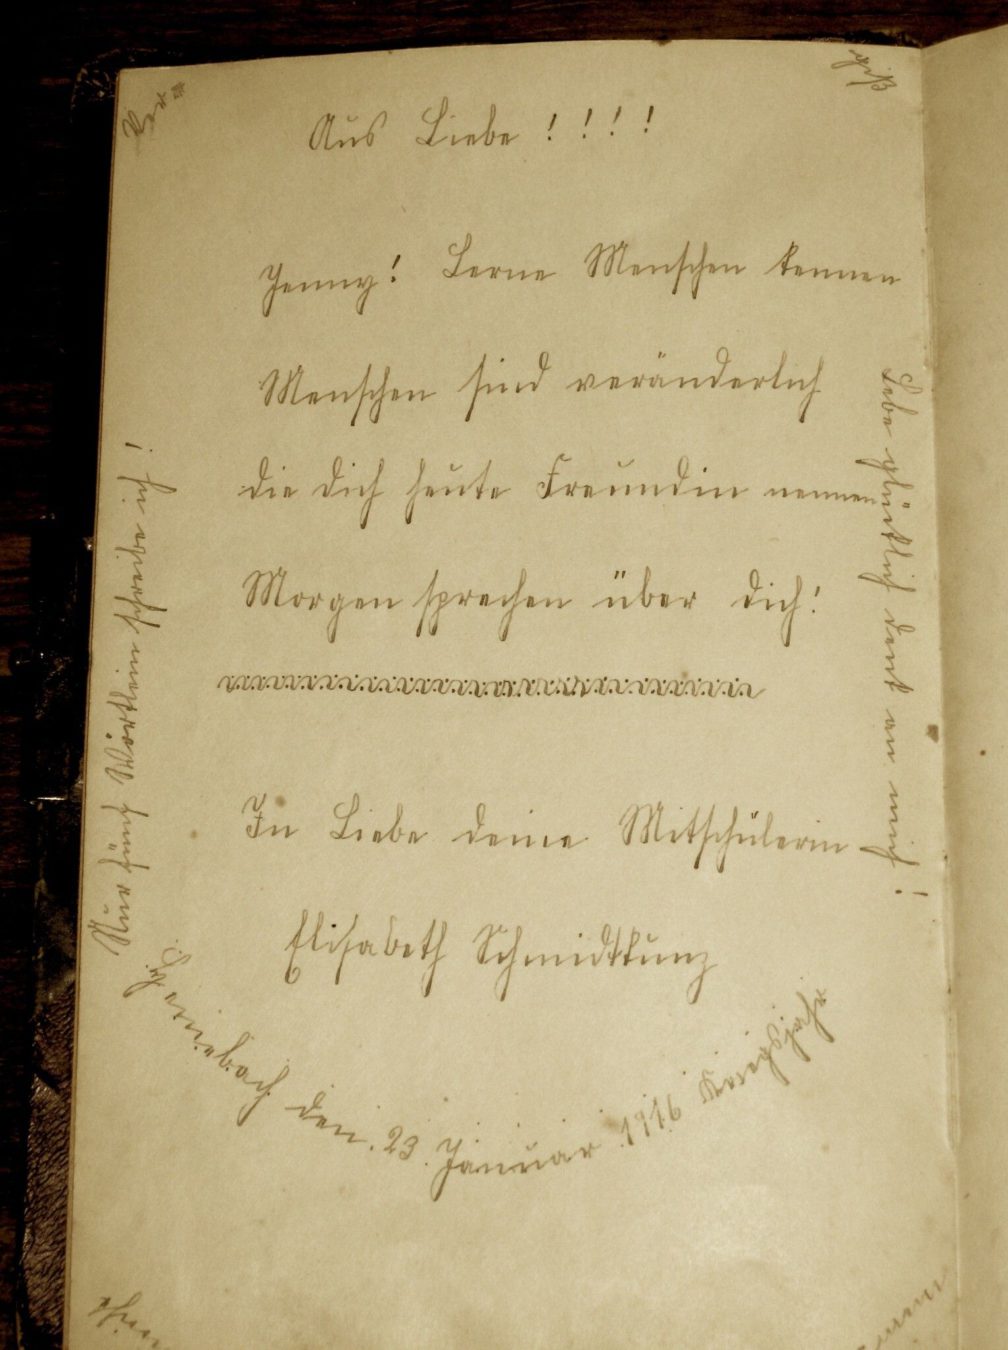 Ver
giß
Aus Liebe ! ! ! !
Jenny! Lerne Menschen kennen
Menschen sind veränderlich
die dich heute Freundin nennen
Morgen sprechen über dich!
In Liebe deine Mitschülerin
Elisabeth Schmidtkunz
den 23. Januar 1916 Kriegsjahr
Nur fünf Wörtlein schreibe ich!
Lebe glücklich denk an mich!